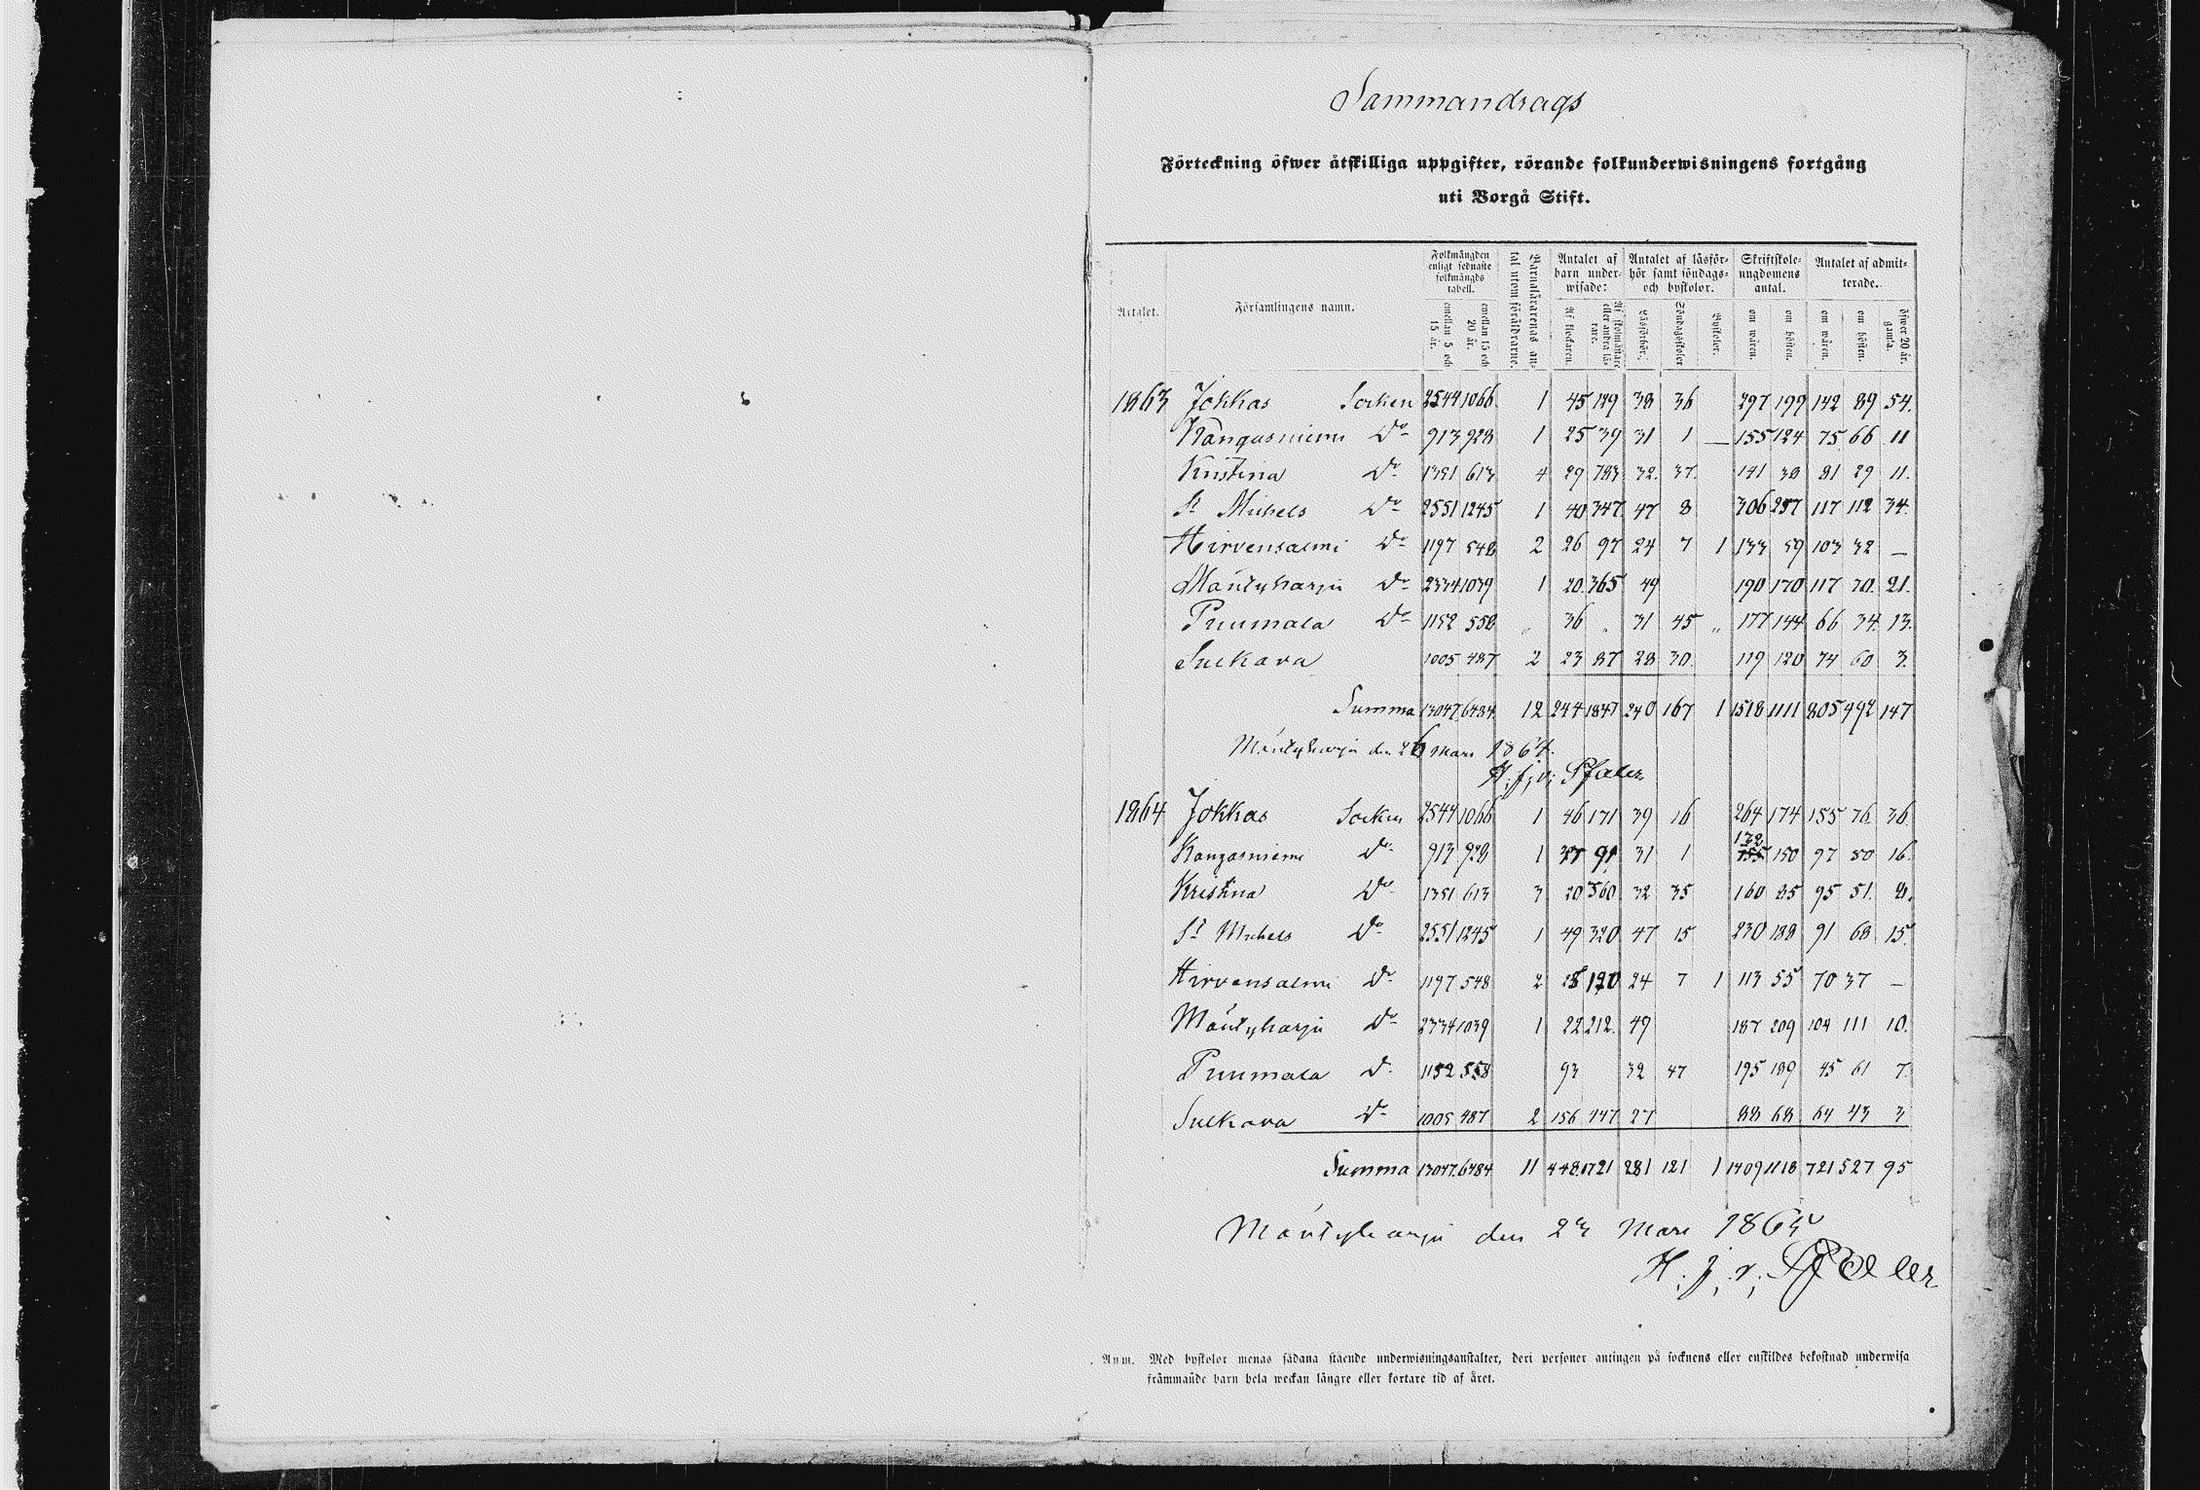 Sammandrags
Förteckning öfwer åtskilliga uppgifter, rörande folkunderwisningens fortgång
uti Borgå Stift.
Årtalet. Församlingens namn. Folkmängden enligt sednaste folkmängds tabell. emellan 5 och 15 år. emellan 15 och 20 år. Barnalärarenas antal utom föräldrarne. Antalet af barn underwisade: Af klockaren Af skolmästare eller andra lärare. Antalet af läsförhör samt söndags- och byskolor. Läsförhör. Söndagsskolor Byskolor. Skriftskoleungdomens antal. om wåren. om hösten. Antalet af admitterade. om wåren. om hösten. öfwer 20 år. gamla.
1863 Jokkas Socken 2544 1066 1 45 189 38 36 297 199 142 89 54.
Kangasniemi Do 913 928 1 25 39 31 1 — 155 124 75 66 11
Kristina Do 1351 613 4 29 783 32. 37. 141 38 81 29 11.
St Michels Do 2551 1245 1 40 347 47 8 306 257 117 112 34.
Hirvensalmi Do 1197 548 2 26 97 24 7 1 133 59 103 32 —
Mäntyharju Do 2334 1039 1 20. 365 49 190 170 117 70. 21.
Puumala Do 1152 558 „ 36 „ 31 45 „ 177 144 66 34. 13.
Sulkava 1005 487 2 23 87 28 30. 119 120 74 60 3.
Summa 13047. 6484. 12 244 1847 240 167 1 1518 1111 805 992 147
Mäntyharju den 26 Mars 1864.
H. j. v; Pfaler
1864 Jokkas Socken 2544 1066 1 46 171 39 16 264 174 155 76. 36.
Kangasniemi Do 913 928 1 37 91 31 1 132 155 150 97 50 16.
Kristina Do 1351 613 3 20 560 32 35 160 85 95 51. 8.
St Michels Do 2551 1245 1 49 320 47 15 230 188 91 68 15.
Hirvensalmi Do 1197 548 2 25 120 24 7 1 113 55 70 37 —
Mäntyharju Do 2334 1039 1 22 212. 49 187 209 104 111 10.
Puumala Do 1152 558 93 32 47 195 189 45 61 7.
Sulkava Do 1005 487 2 156 247 27 88 68 64 43 3
Summa 13047. 6484 11 448 1721 281 121 1 1409 1118 721 527 95
Mäntyharju den 23 Mars 1865
H. j. v; Pfaler
Anm. Med byskolor menas sådana stående underwisningsanstalter, deri personer antingen på socknens eller enskildes bekostnad underwisa
främmande barn hela weckan längre eller kortare tid af året.